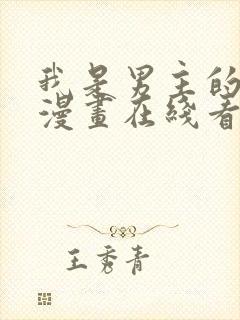 我是男主的
漫畫在綫看
王秀青